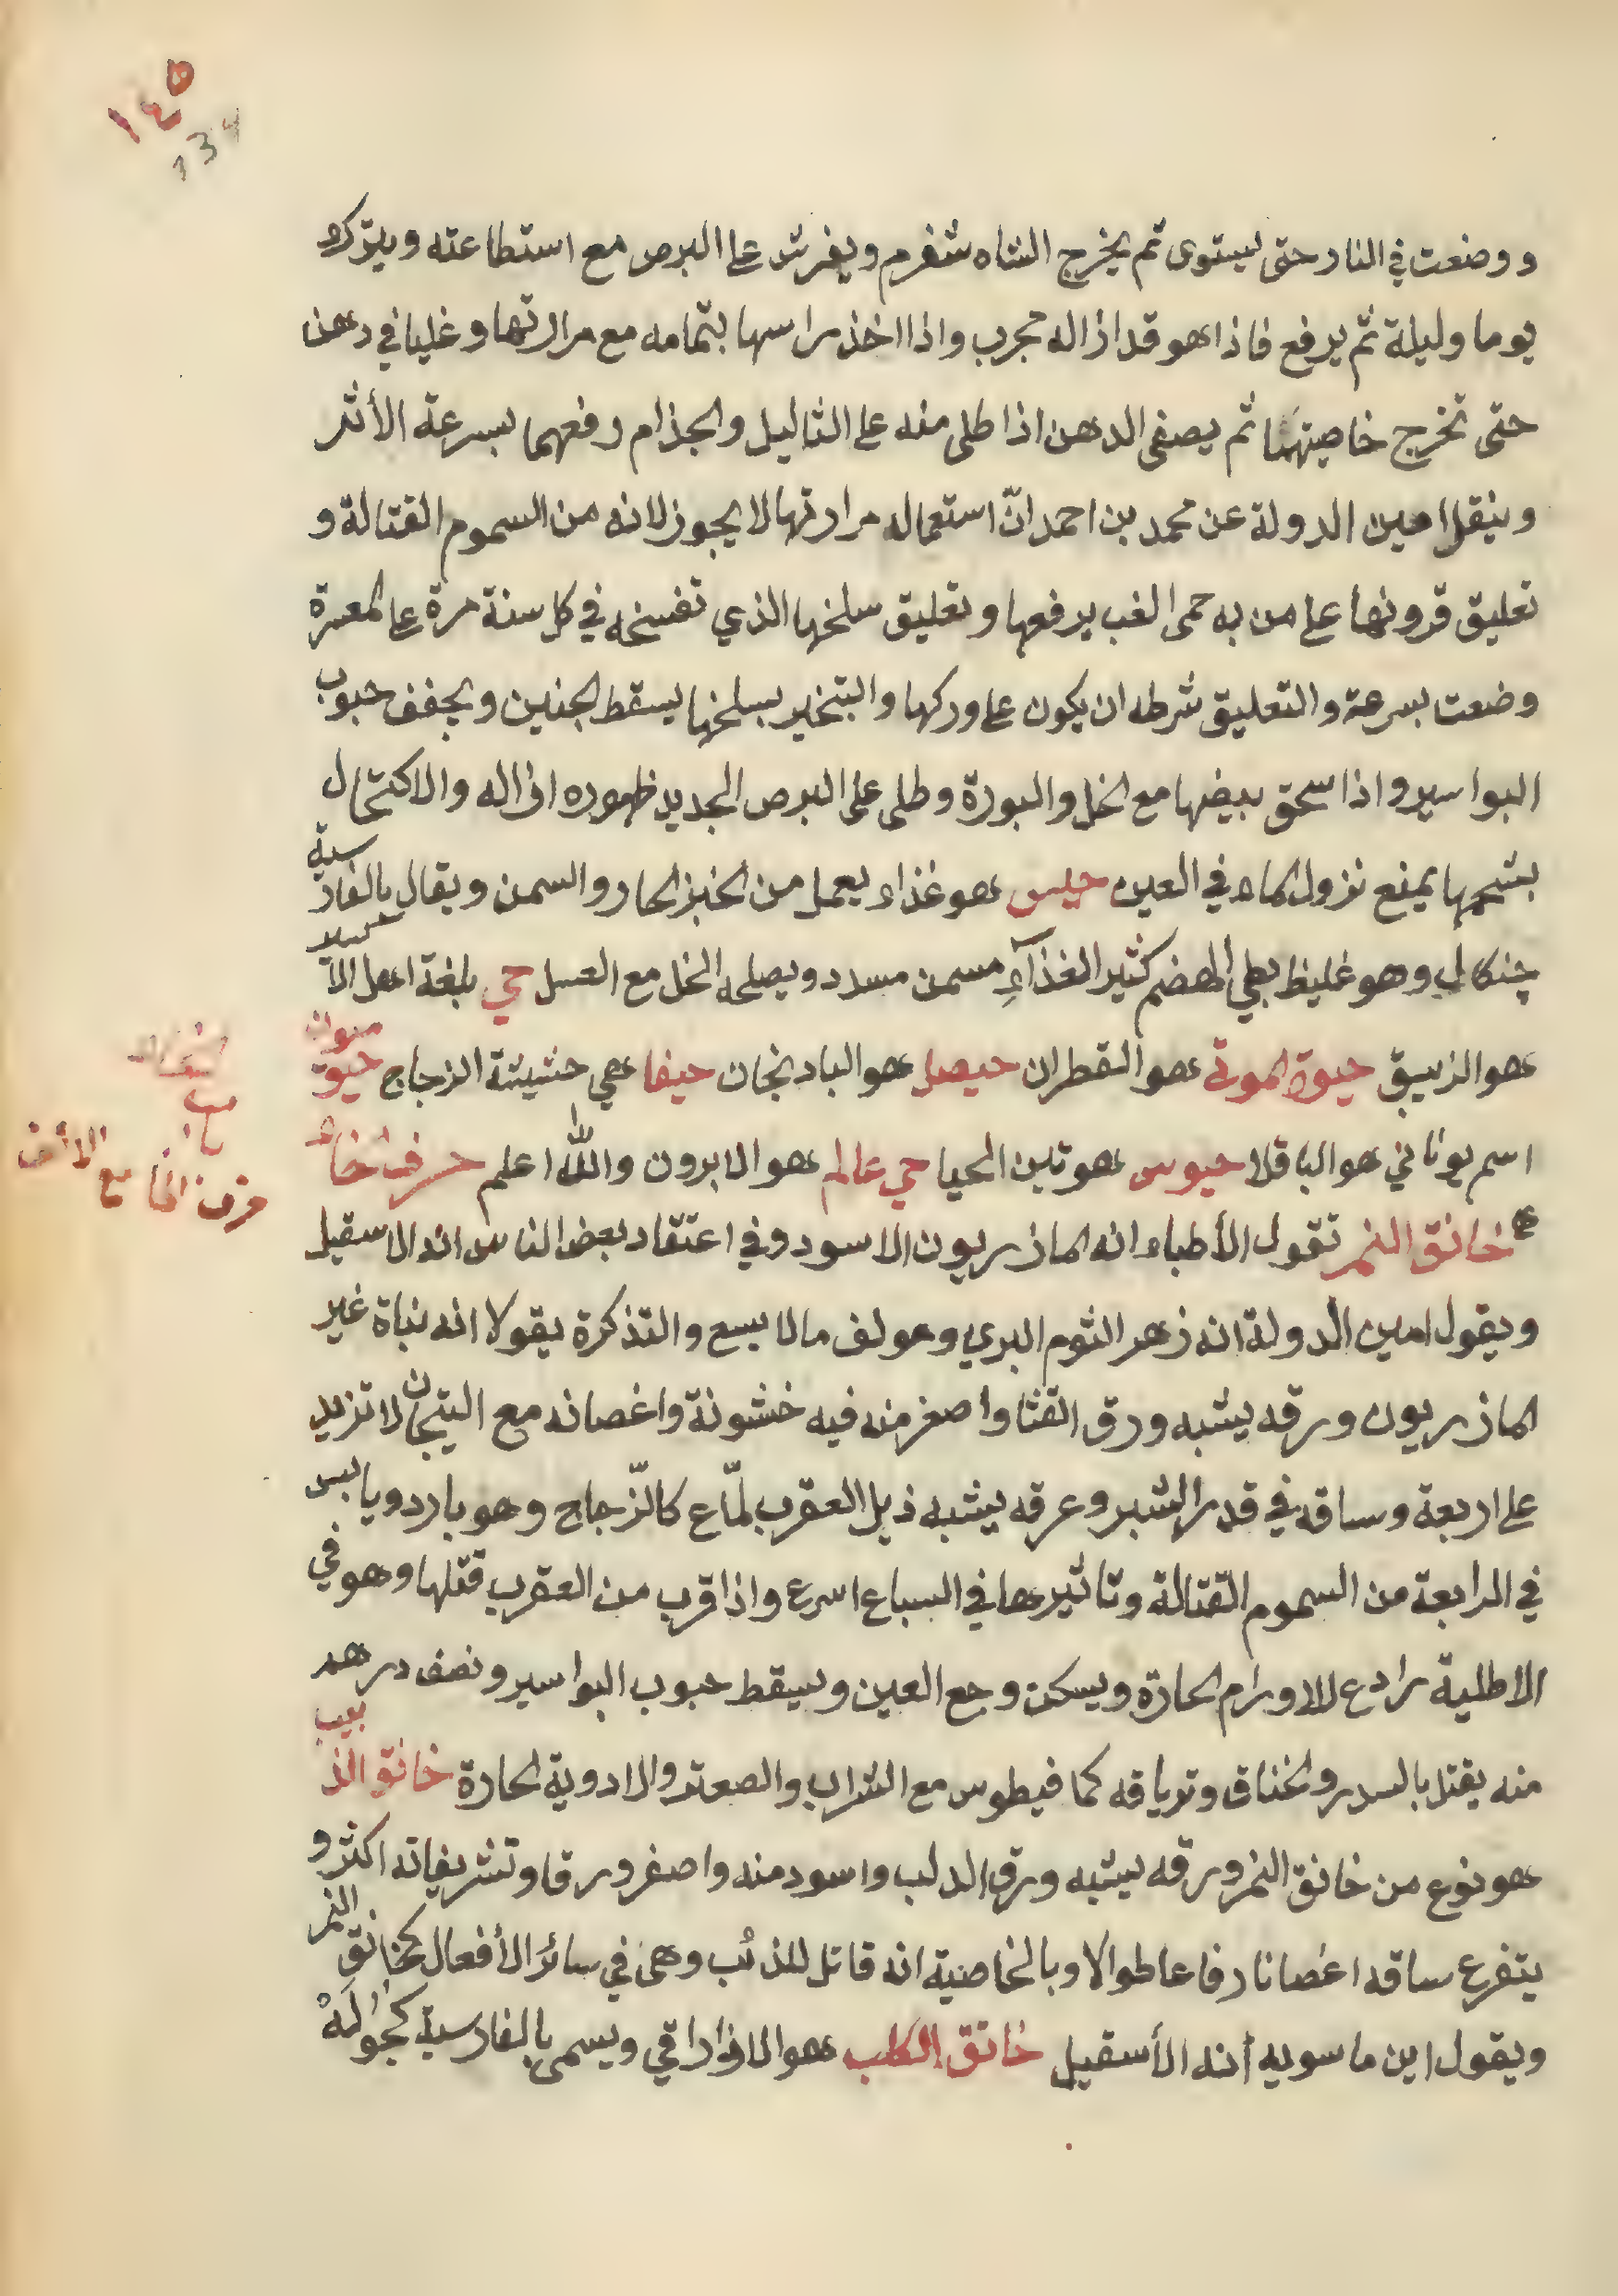 ١٤٥
134
ووضعت في النار حتى يستوى ثم يخرج الشاه شفرم ويفرش على البرص مع استطاعته ويتركه
يوما وليلة ثم يرفع فاذا هو قد ازاله مجرب واذا اخذ راسها بتمامه مع مرارتها وغليا في دهن
حتى تخرج خاصيتهما ثم يصفى الدهن اذا طلى منه على الثاليل والجذام رفعهما بسرعة الأثر
وينقل امين الدولة عن محمد بن احمد انّ استعماله مرارتها لا يجوز لانه من السموم القتالة و
تعليق قرونها على من به حمى الغب يرفعها وتعليق سلخها الذي تفسخه في كل سنة مرة على المعسرة
وضعت بسرعة والتعليق شرطه ان يكون على وركها والتبخير بسلخها يسقط الجنين ويجفف حبوب
البواسير واذا سحق بيضها مع الخل والبورة وطلى على البرص الجديد ظهوره ازاله والاكتحال
بشحمها يمنع نزول الماء في العين حيس هو غذاء يعمل من الخبز الحار والسمن ويقال بالفارسية
چنكال وهو غليظ بطي الهضم كثير الغذآءِ مسمن مسدد ويصلحه الخل مع العسل حي بلغة اهل الاكسير
هو الزيبق حيوة الموتى هو القطران حيصل هو البادنجان حيفا هي حشيشة الزجاج حيوق
اسم يوناني هو الباقلا حيوس هو تين المحيا حي عالم هو الابرون والله اعلم حرف خا
خانق النمر تقول الأطباء انه المازريون الاسود وفي اعتقاد بعض الناس انه الاسقيل
ويقول امين الدولة انه زهر الثوم البري ومولف مالا يسع والتذكرة يقولا انه نباة غير
المازريون ورقه يشبه ورق القثا واصغر منه فيه خشونة واغصانه مع التيجان لا تزيد
على اربعة وساقه في قدر الشبر وعرقه يشبه ذيل العقرب لمّاع كالزّجاج وهو بارد ويابس
في الرابعة من السموم القتالة وتاثيرها في السباع اسرع واذا قرب من العقرب قتلها وهو في
الاطلية رادع للاورام الحارة ويسكن وجع العين ويسقط حبوب البواسير ونصف درهم
منه يقتل بالسدر والخناق وترياقه كما فيطوس مع الشراب والصعتر والادوية الحارة خانق الذيب
هو نوع من خانق النمر ورقه يشبه ورق الدلب واسود منه واصغر ورقا وتشريفاته اكثر و
يتفرع ساقه اغصانا رفاعا طوالا وبالخاصية انه قاتل للذئب وهى في سائر الأفعال كخانق النمر
ويقول ابن ماسويه أنه الأسقيل خانق الكلب هو الاذاراقي ويسمى بالفارسية كجوله
باب
حرف الخا مع الالف